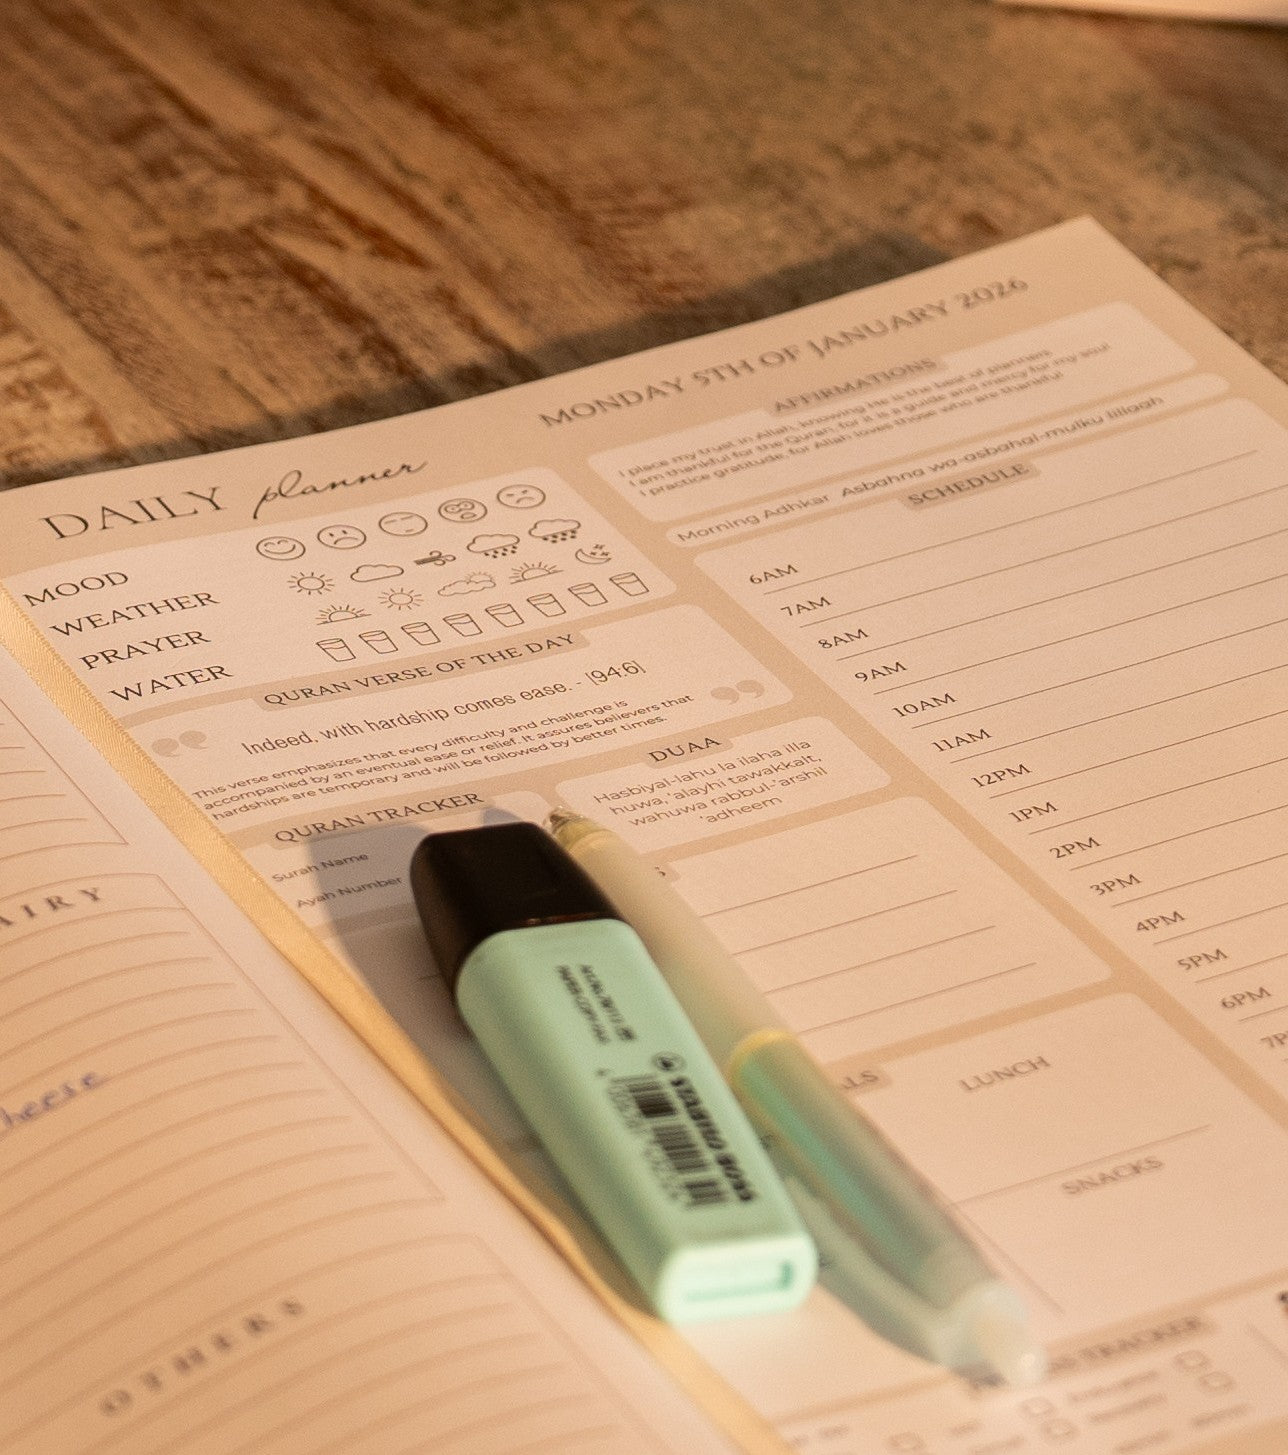 DAILY planner
MONDAY 5TH OF JANUARY 2026
MOOD
WEATHER
PRAYER
WATER
QURAN VERSE OF THE DAY
Indeed, with hardship comes ease. - [94:6]
This verse emphasizes that every difficulty and challenge is
accompanied by an eventual ease or relief. It assures believers that
hardships are temporary and will be followed by better times.
QURAN TRACKER
Surah Name
Ayah Number
DUAA
Hasbiyal-lahu la ilaha illa
huwa, 'alayhi tawakkalt,
wahuwa rabbul-'arshil
'adheem
AFFIRMATIONS
I place my trust in Allah, knowing He is the best of planners
I am thankful for the Quran, for it is a guide and mercy for my soul
I practice gratitude, for Allah loves those who are thankful
Morning Adhkar Asbahna wa-asbahal-mulku lillaah
SCHEDULE
6AM
7AM
8AM
9AM
10AM
11AM
12PM
1PM
2PM
3PM
4PM
5PM
6PM
7P
LS
LUNCH
SNACKS
TRACKER
AIRY
heese
OTHERS